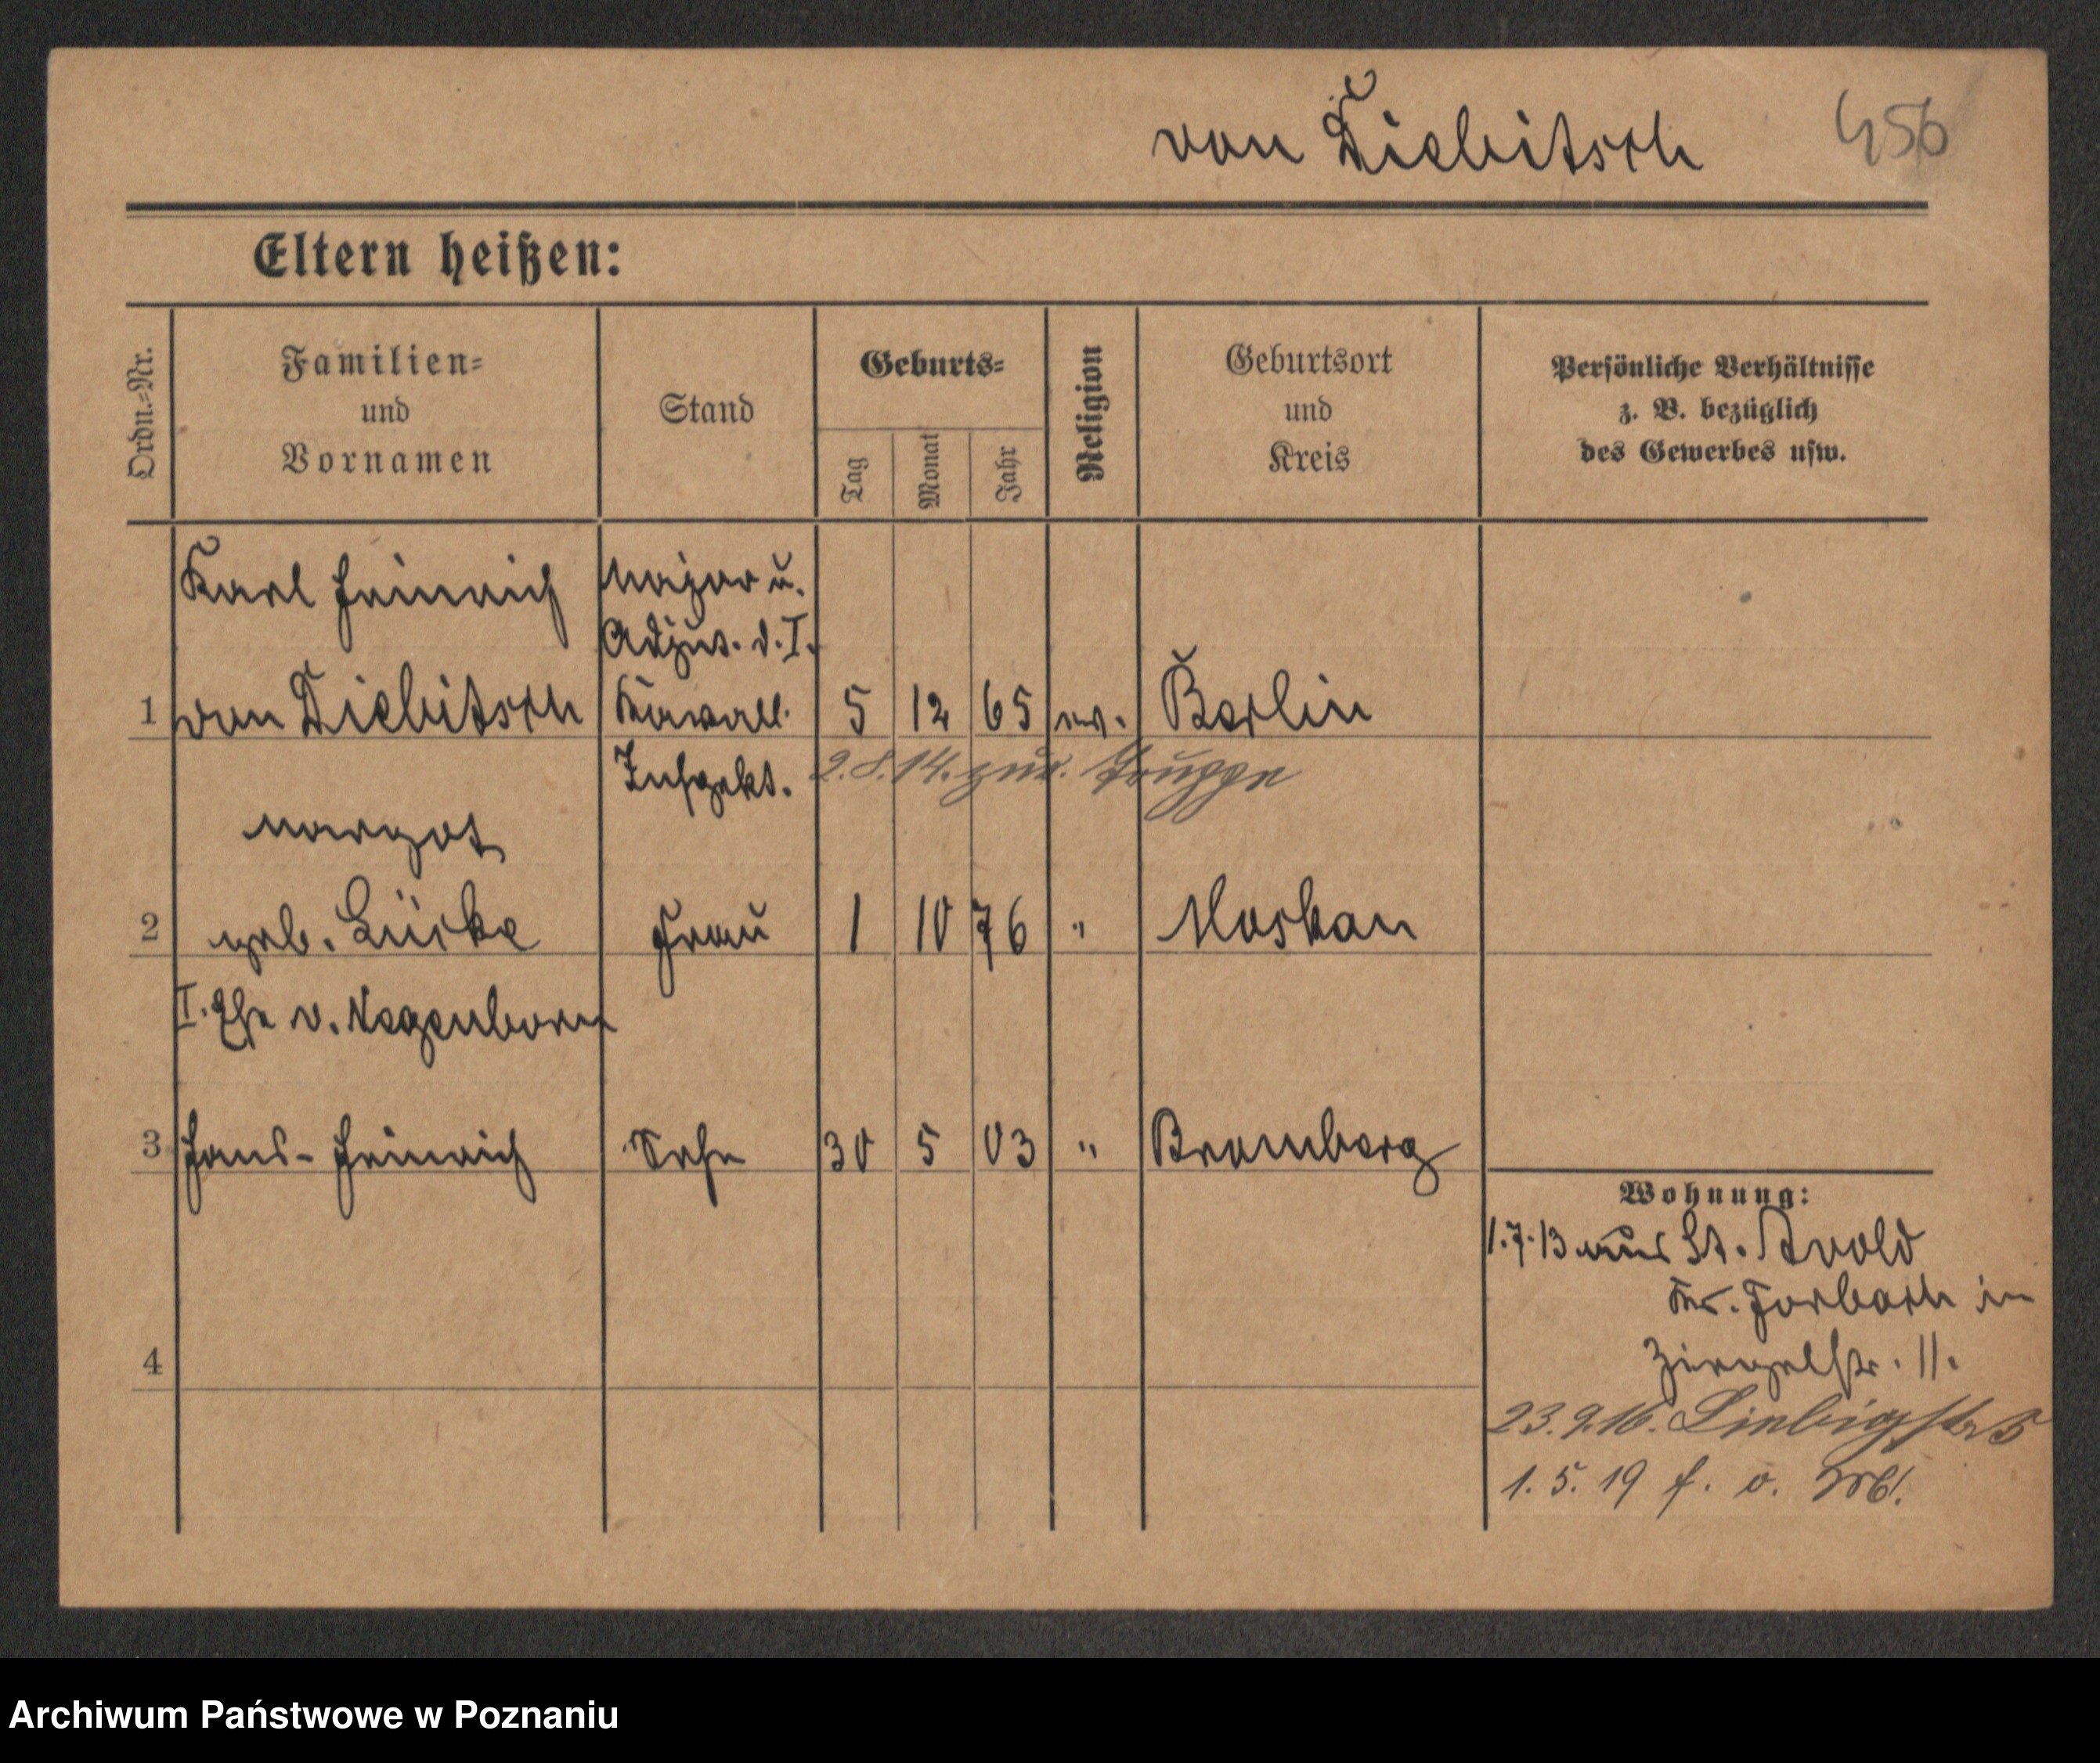 von Diebitsch 456
Eltern heißen:
Ordn.-Nr.
Familien-
und
Vornamen
Stand
Geburts-
Tag
Monat
Jahr
Religion
Geburtsort
und
Kreis
Persönliche Verhältnisse
z. B. bezüglich
des Gewerbes usw.
Karl Heinrich Major u.
Adjut. d. I.
1 von Diebitsch Kavall. 5 12 65 ev. Berlin
Inspekt. 2.8.14. zur Truppe
Margot
2 geb. Lücke Frau 1 10 76 " Moskau
I. Ehe v. Negenborn
3 Hans-Heinrich Sohn 30 5 03 " Bromberg
Wohnung:
1.7.13 aus St. Avold
Kr. Forbach in
4 Ziegelstr. 11.
23.9.16. Liebigstr 5
1. 5. 19 f. o.
Archiwum Państwowe w Poznaniu